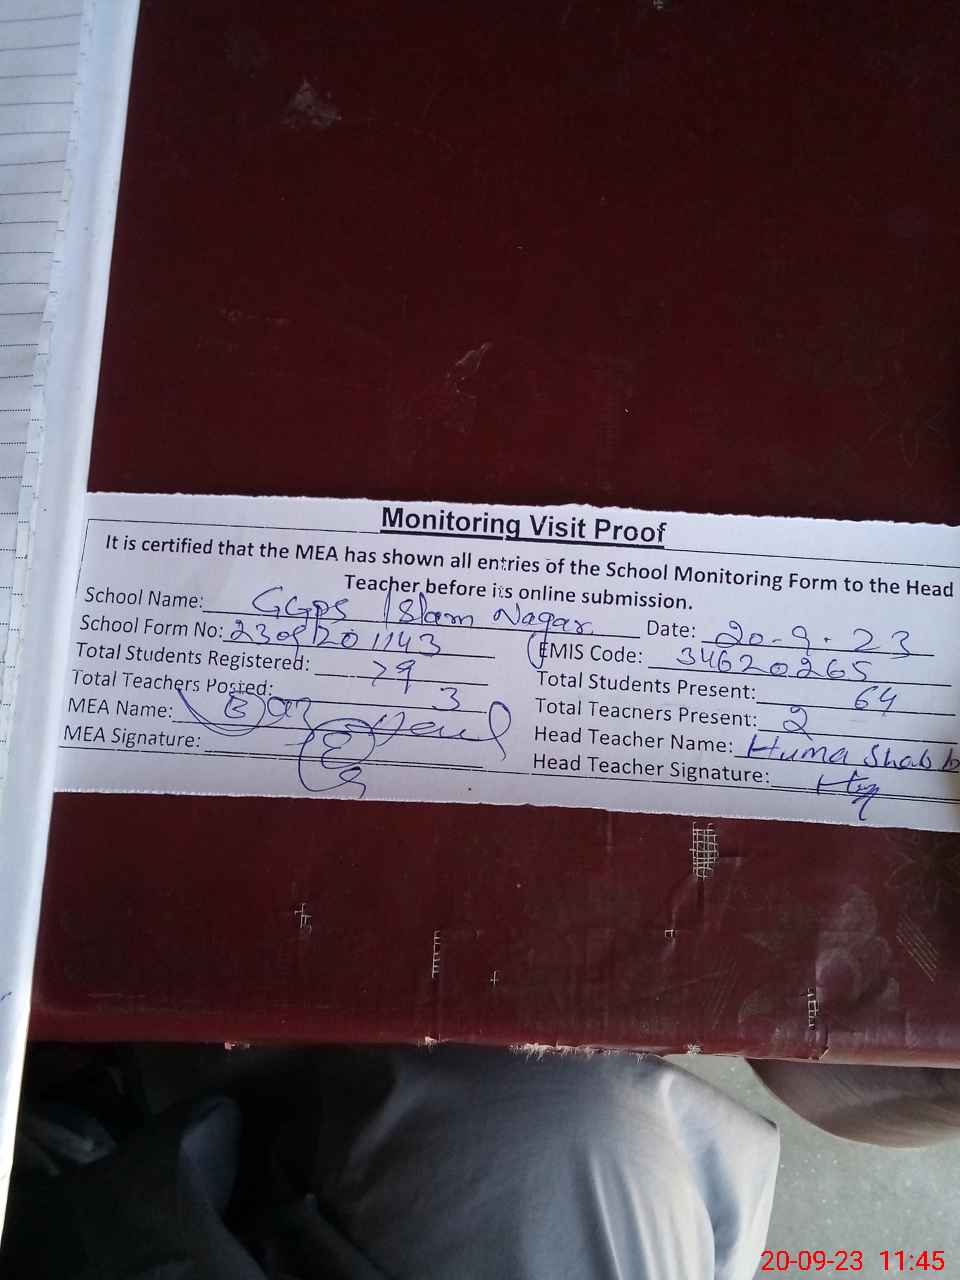 Monitoring Visit Proof
It is certified that the MEA has shown all entries of the School Monitoring Form to the Head
Teacher before its online submission.
School Name: GGPS Islam Nagar Date: 20-9-23
School Form No: 2309201143 EMIS Code: 34620265
Total Students Registered: 79 Total Students Present: 64
Total Teachers Posted: 3 Total Teacners Present: 2
MEA Name: Head Teacher Name: Huma Shabb
MEA Signature: Head Teacher Signature:
20-09-23 11:45